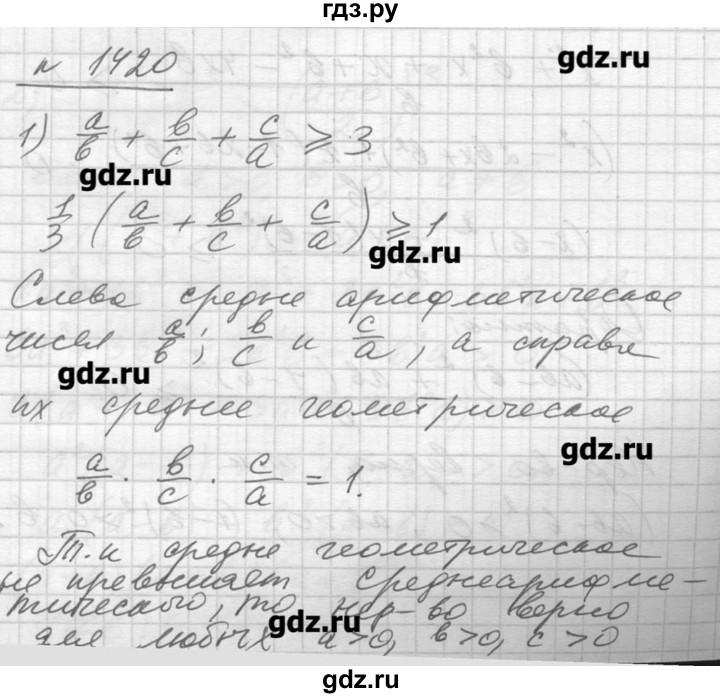 гдз.ру
gdz.ru
n 1420
1) a/в + в/с + с/a ≥ 3
gdz.ru
1/3 (a/в + в/с + с/a) ≥ 1
gdz.ru
Слева средне арифметическое
чисел a/в; в/с и с/a, а справа
gdz.ru
их среднее геометрическое
gdz.ru
a/в · в/с · с/a = 1.
Т.к средне геометрическое
не превышает среднеарифме-
тического, то нер-во верно
gdz.ru
для любых a>0, в>0, с>0
gdz.ru